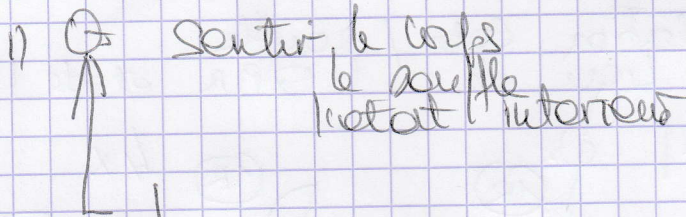 1) Sentir le corps
le souffle
l'état intérieur